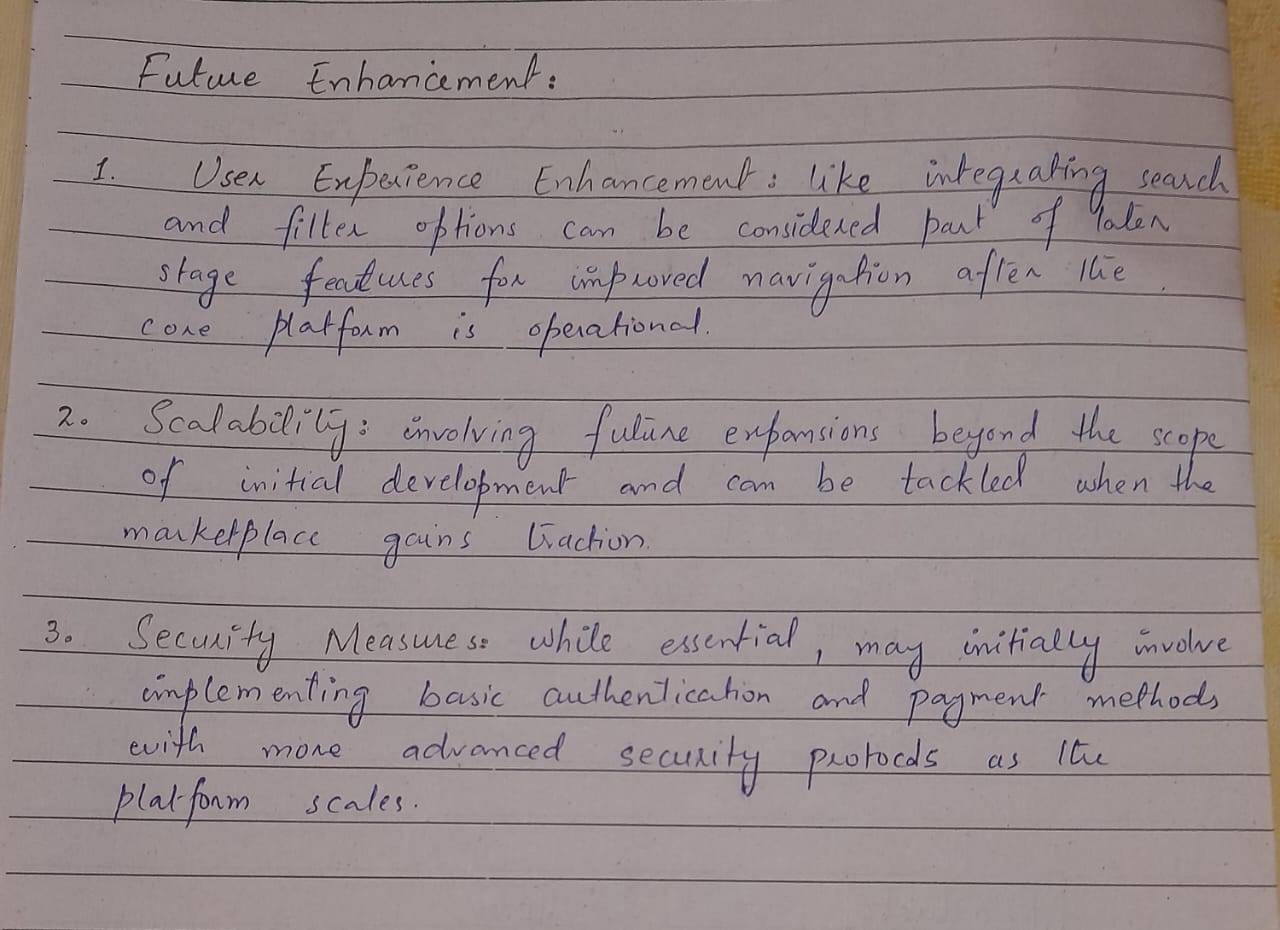 Future Enhancement:
1. User Experience Enhancement: like integrating search
and filter options can be considered part of later
stage features for improved navigation after the
core platform is operational.
2. Scalability: involving future expansions beyond the scope
of initial development and can be tackled when the
marketplace gains traction.
3. Security Measures: while essential, may initially involve
implementing basic authentication and payment methods
with more advanced security protocols as the
platform scales.